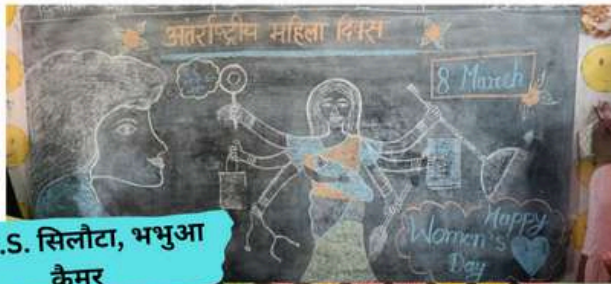 अंतर्राष्ट्रीय महिला दिवस
8 March
Happy
Women's
Day
.S. सिलौटा, भभुआ
कैमूर